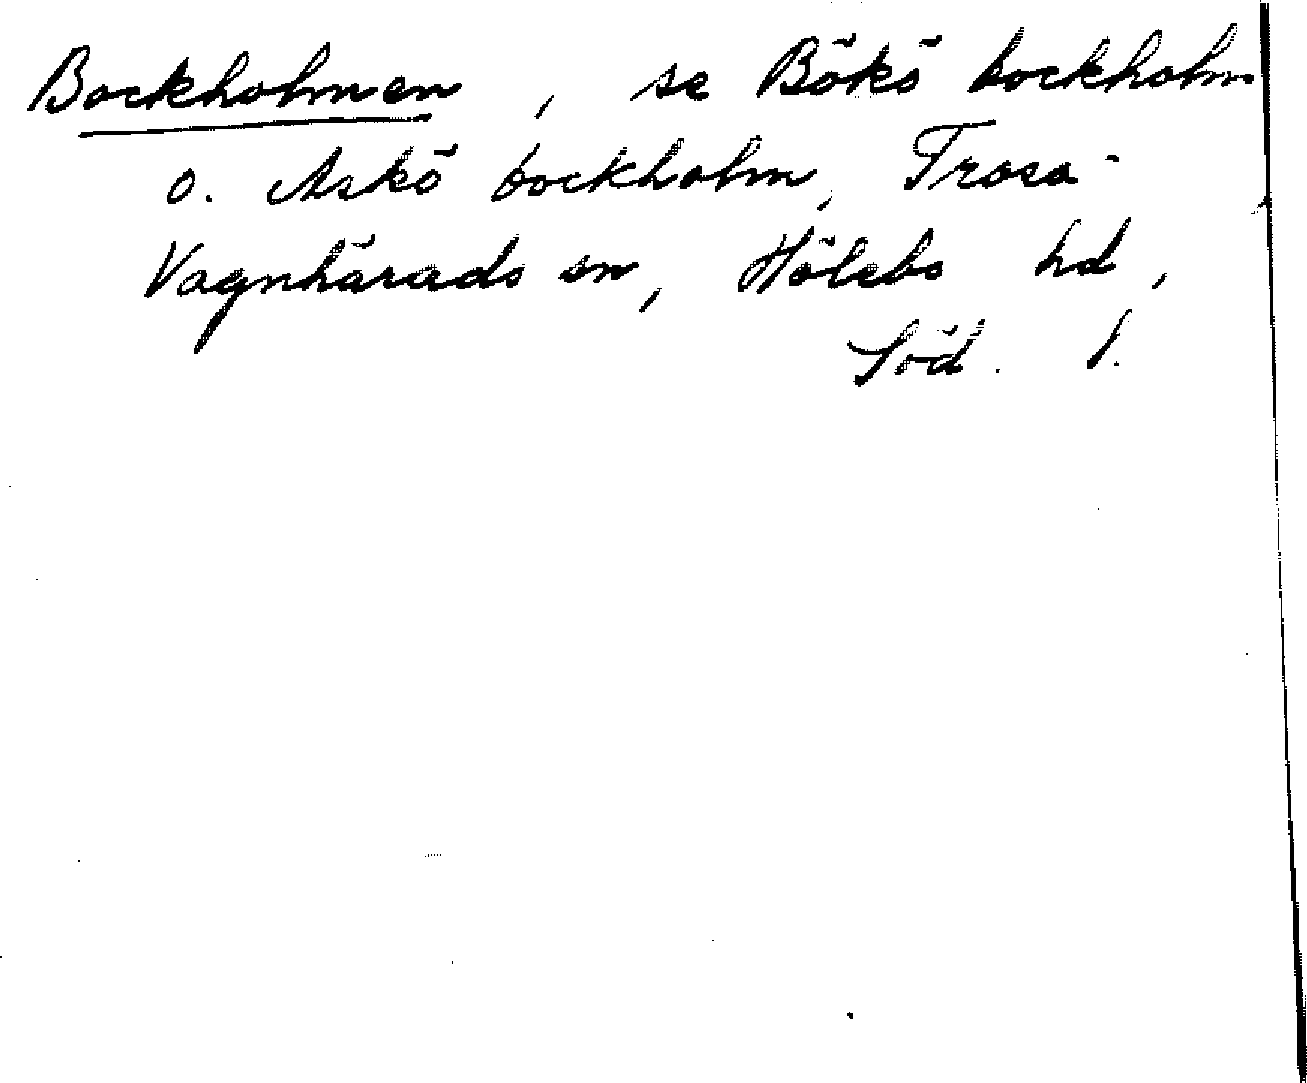 Bockholmen, se Bökö bockholm
o. Askö bockholm, Trosa-
Vagnhärads sn, Hölebo hd,
Söd. l.